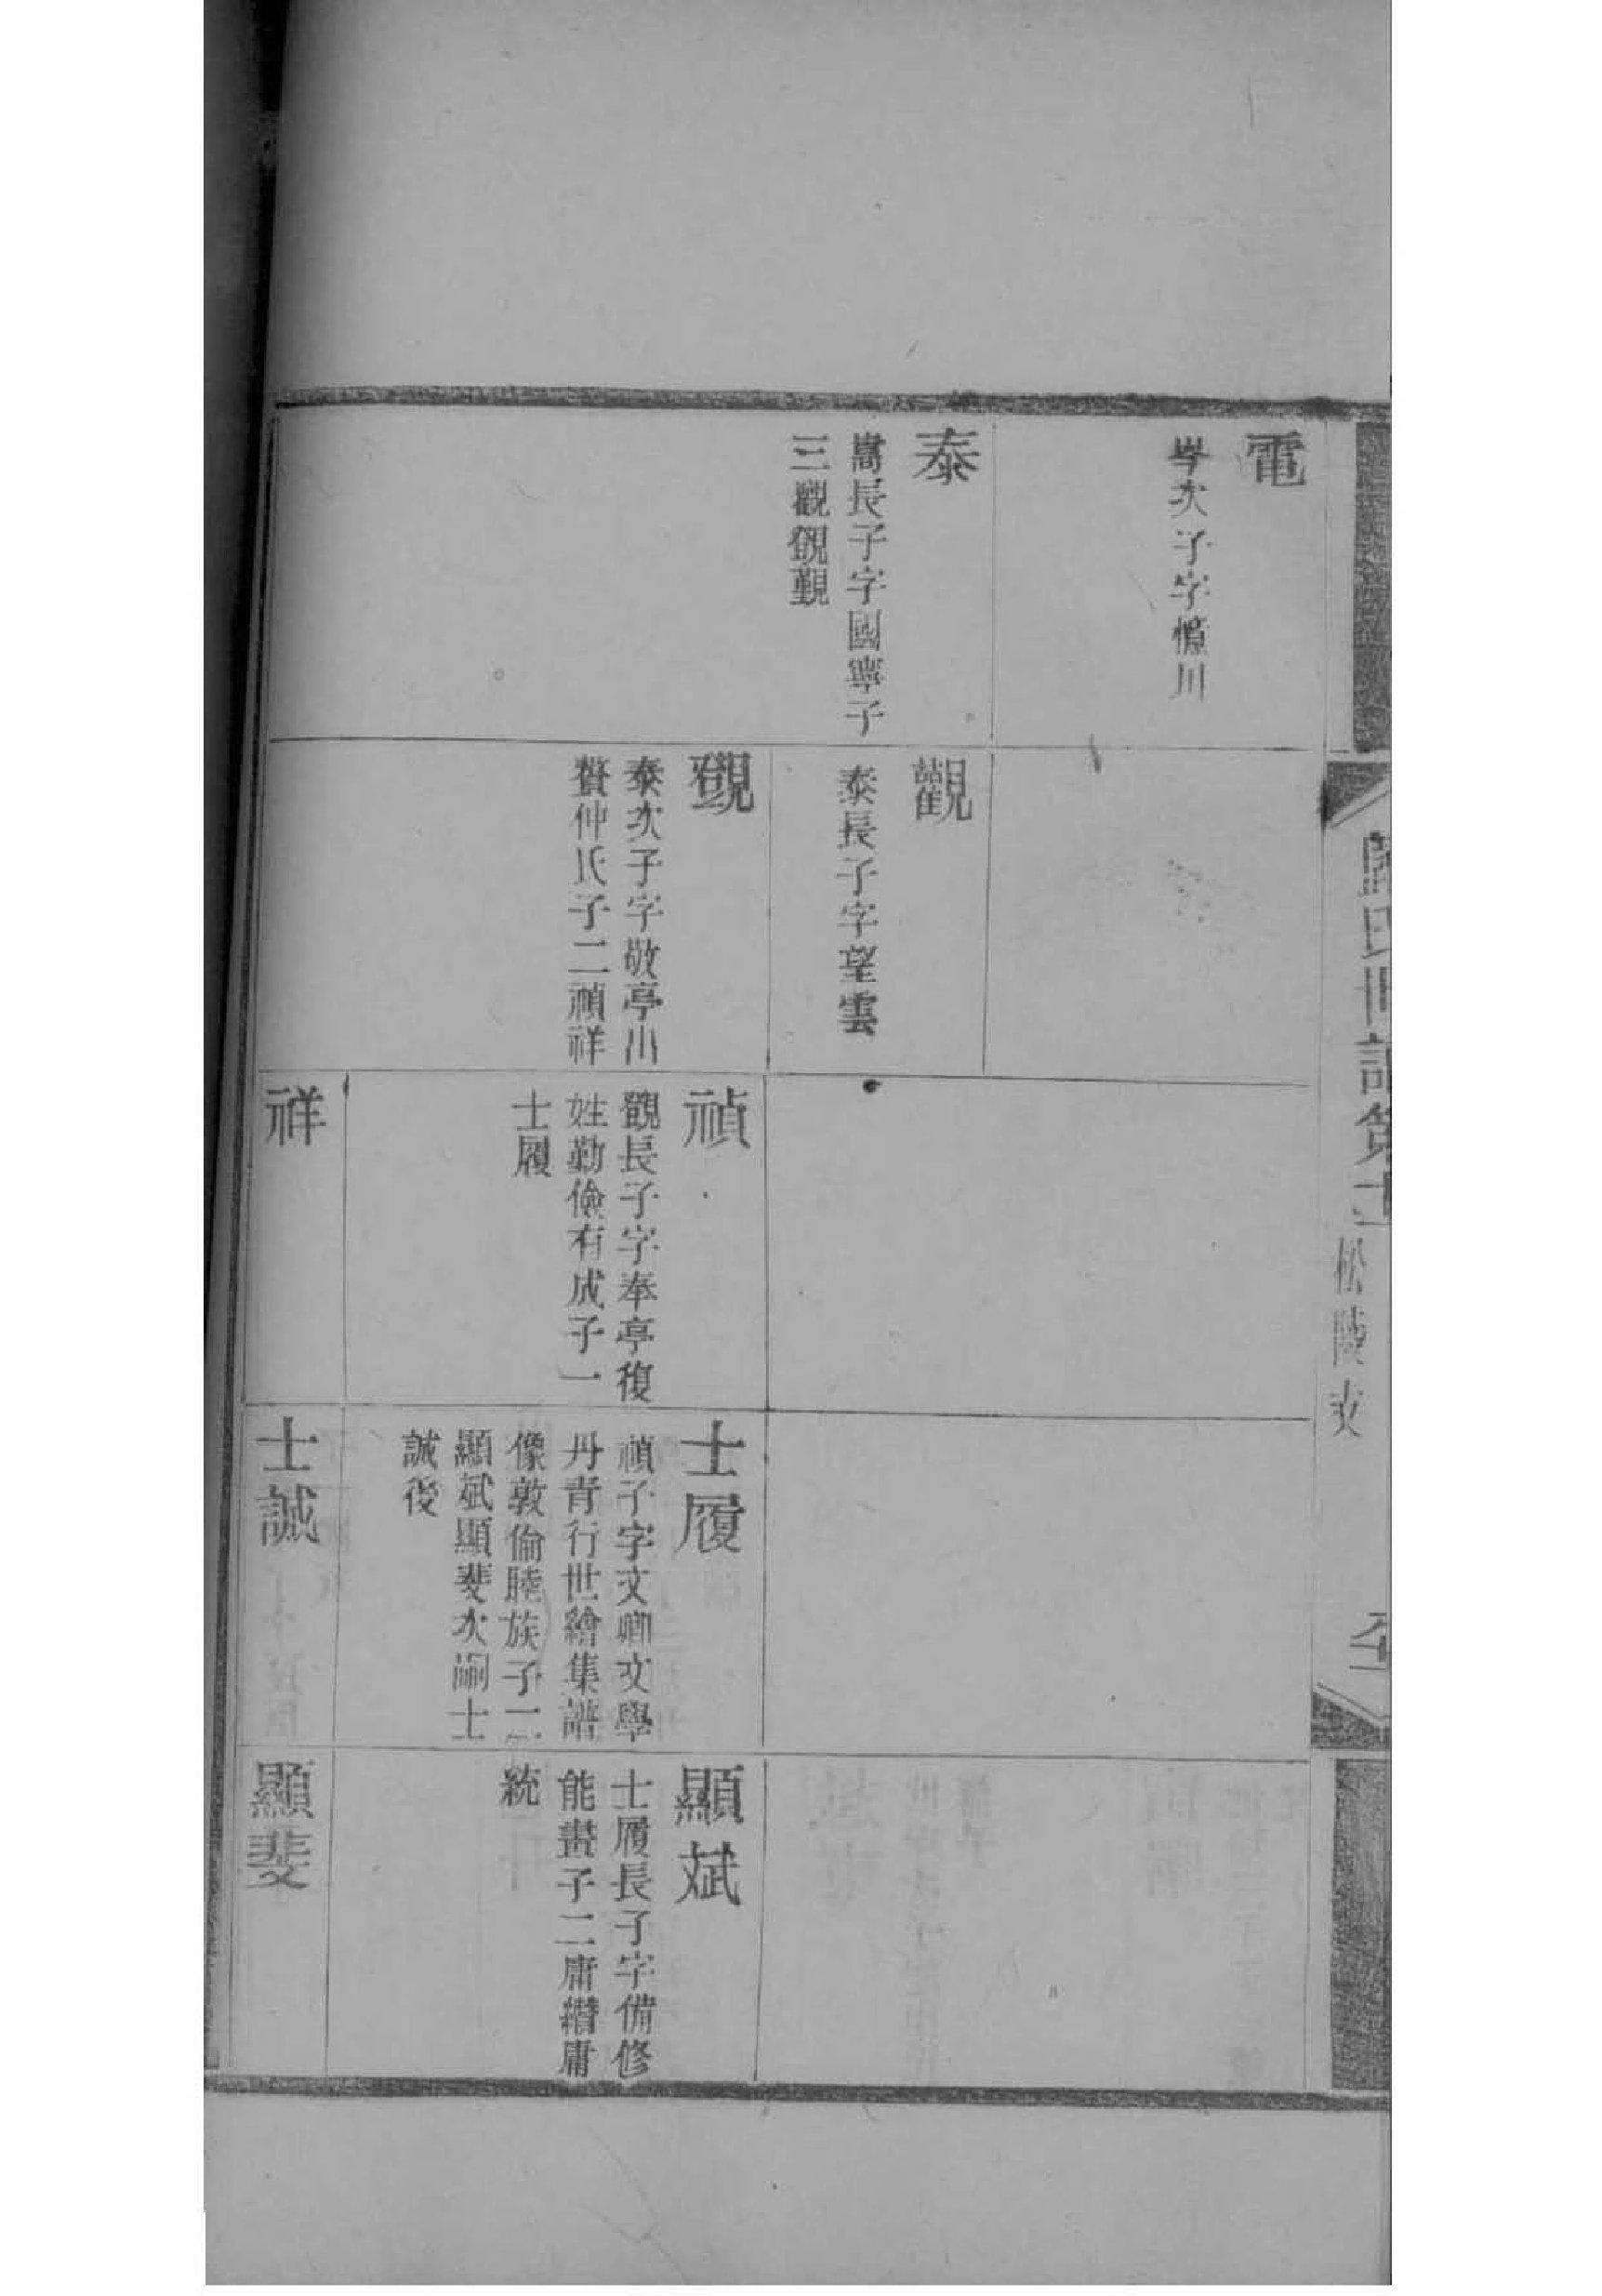 電
次子字川
泰
嵩長子字國寧子
三觀覴覲
觀
泰長子字望雲
覴
泰次子字敬亭出
贅仲氏子二禎祥
禎
覴長子字奉亭復
姓勤儉有成子一
士履
祥
士履
禎子字文卿文學
丹青行世繪集譜
像敦倫睦族子二
顯斌顯斐次嗣士
誠後
士誠
顯斌
士履長子字備修
能畫子二庸纘庸
統
顯斐
氏世譜第
松陵支